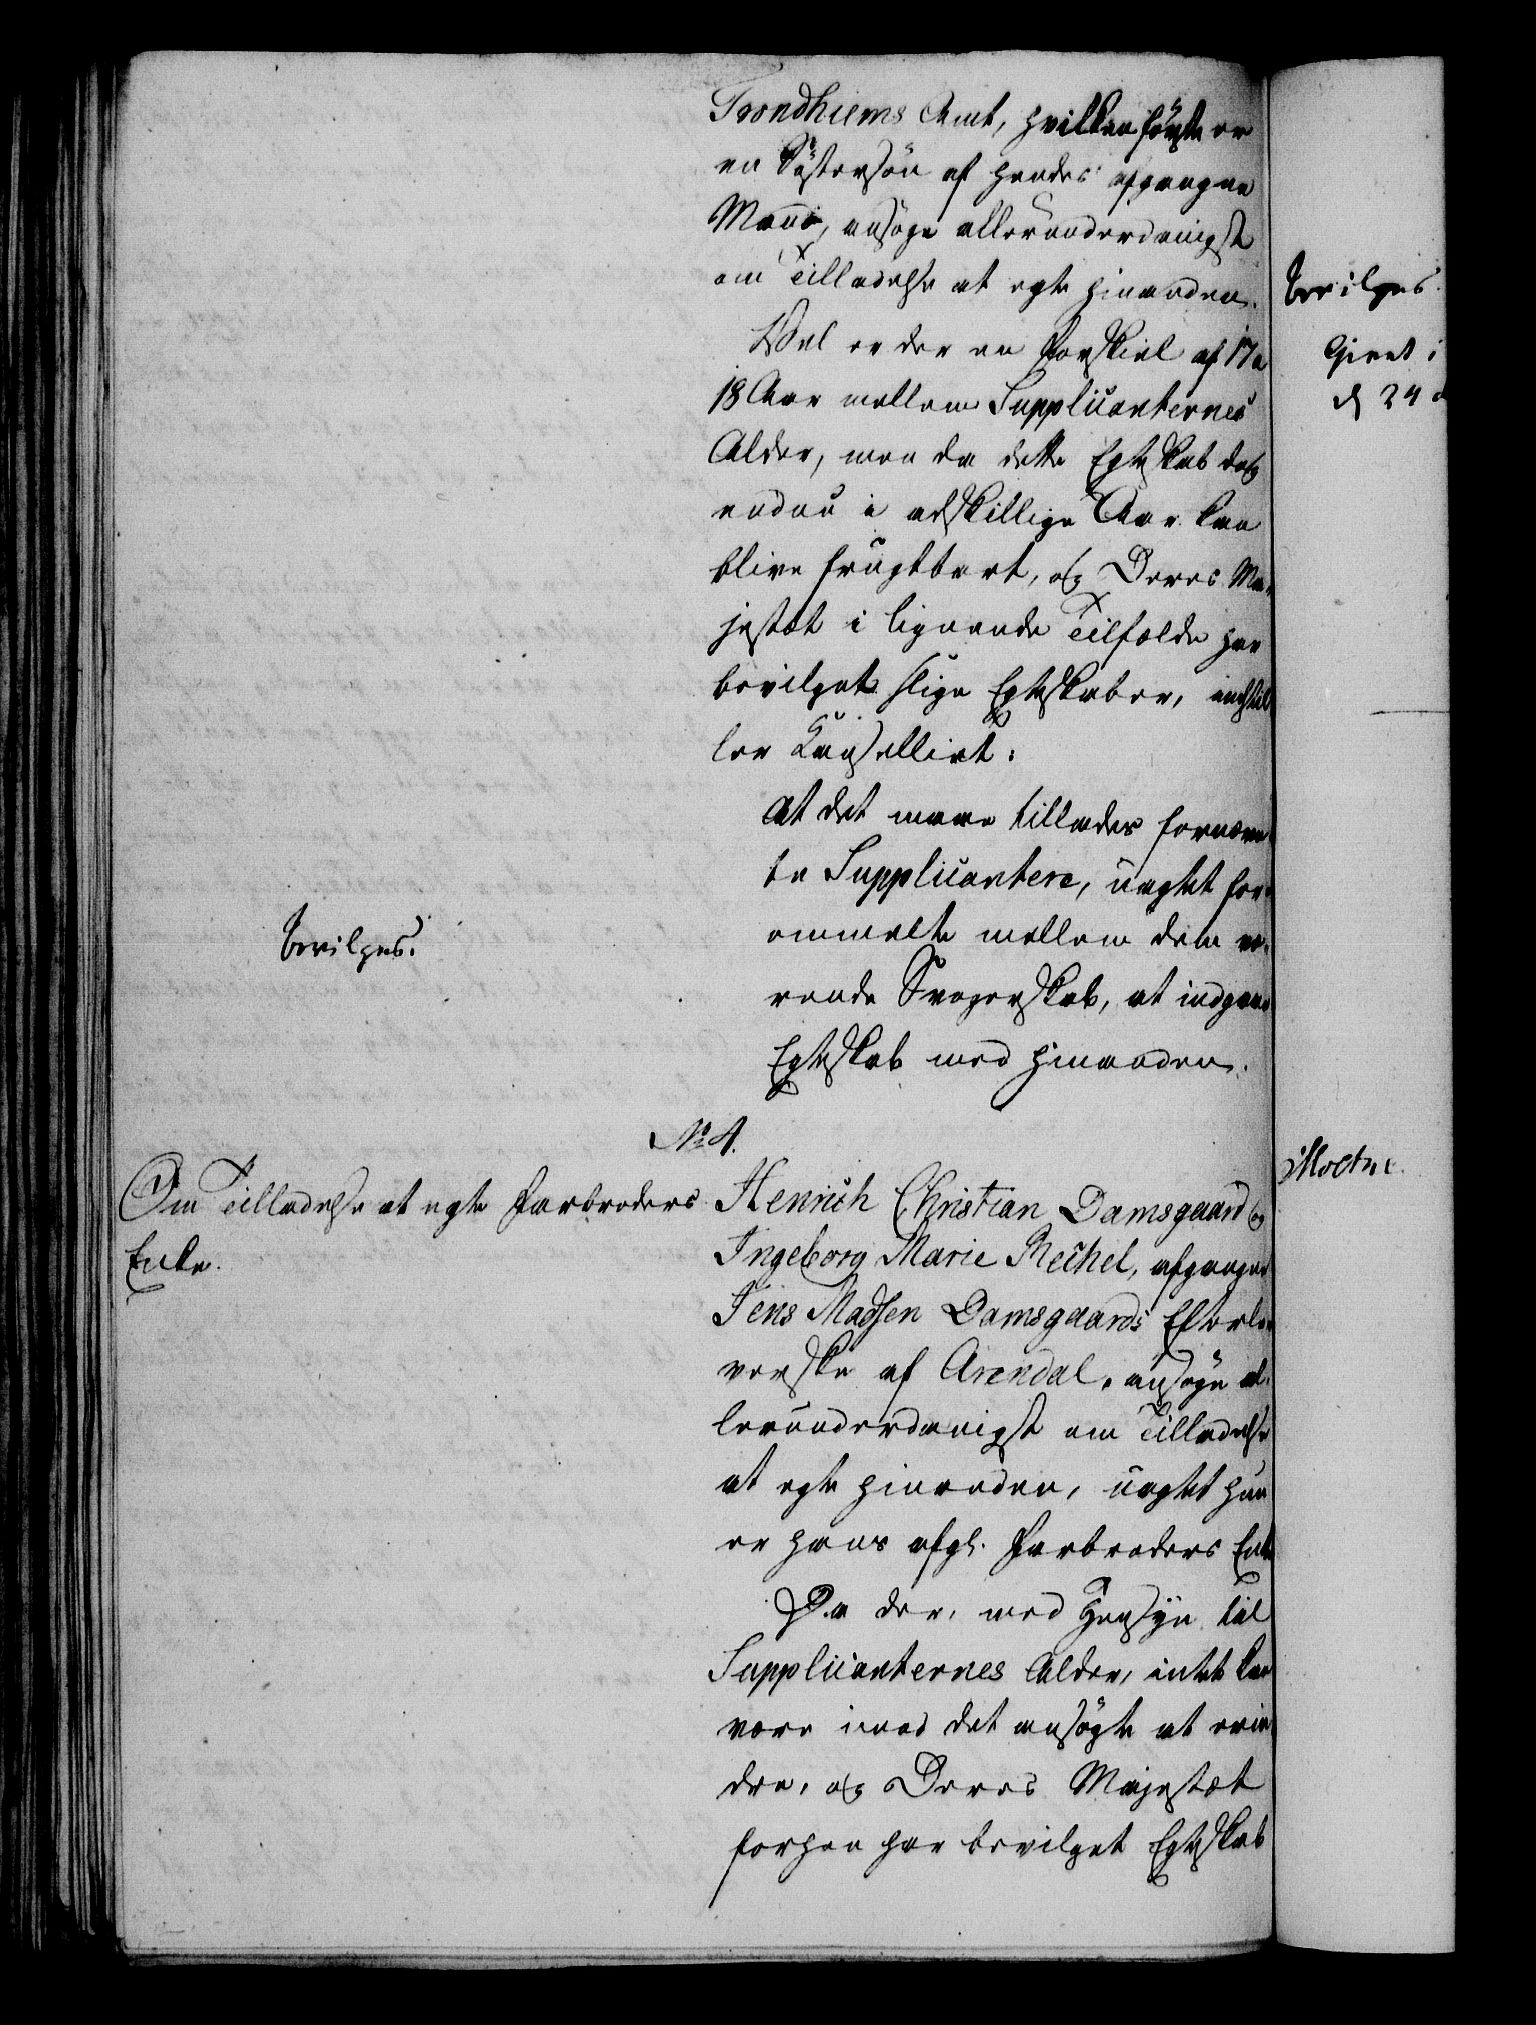 Trondhiems Amt, hvilken første er
en Søstersøn af hendes afgangne
Mand, ansøge allerunderdanigst
om Tilladelse at egte hinanden.
Vel er der en Forskiel af 17 a
18 Aar mellem Supplicanternes
Alder, men da dette Egteskab dog
endnu i adskillige Aar kan
blive frugtbart, og Deres Ma-
jestæt i lignende Tilfælde har
bevilget slige Egteskaber, indstil
ler Kancelliet:
at det maae tillades fornævn
te Supplicantere, uagtet for-
ommelte mellem dem væ-
rende Svogerskab, at indgaae
Egteskab med hinanden.
bevilges.
No 4.
Om Tilladelse at egte Farbroders
Enke.
Henrich Christian Damsgaard og
Ingeborg Marie Rechel, afgangne
Jens Madsen Damsgaards Efterle-
verske af Arendal, ansøge al-
lerunderdanigst om Tilladelse
at egte hinanden, uagtet hun
er hans afgl. Farbroders Enke
Da der, med Hensyn til
Supplicanternes Alder, intet kan
være imod det ansøgte at erin
dre, og Deres Majestæt
forhen har bevilget Egteskab
bevilges.
Givet i
d 24